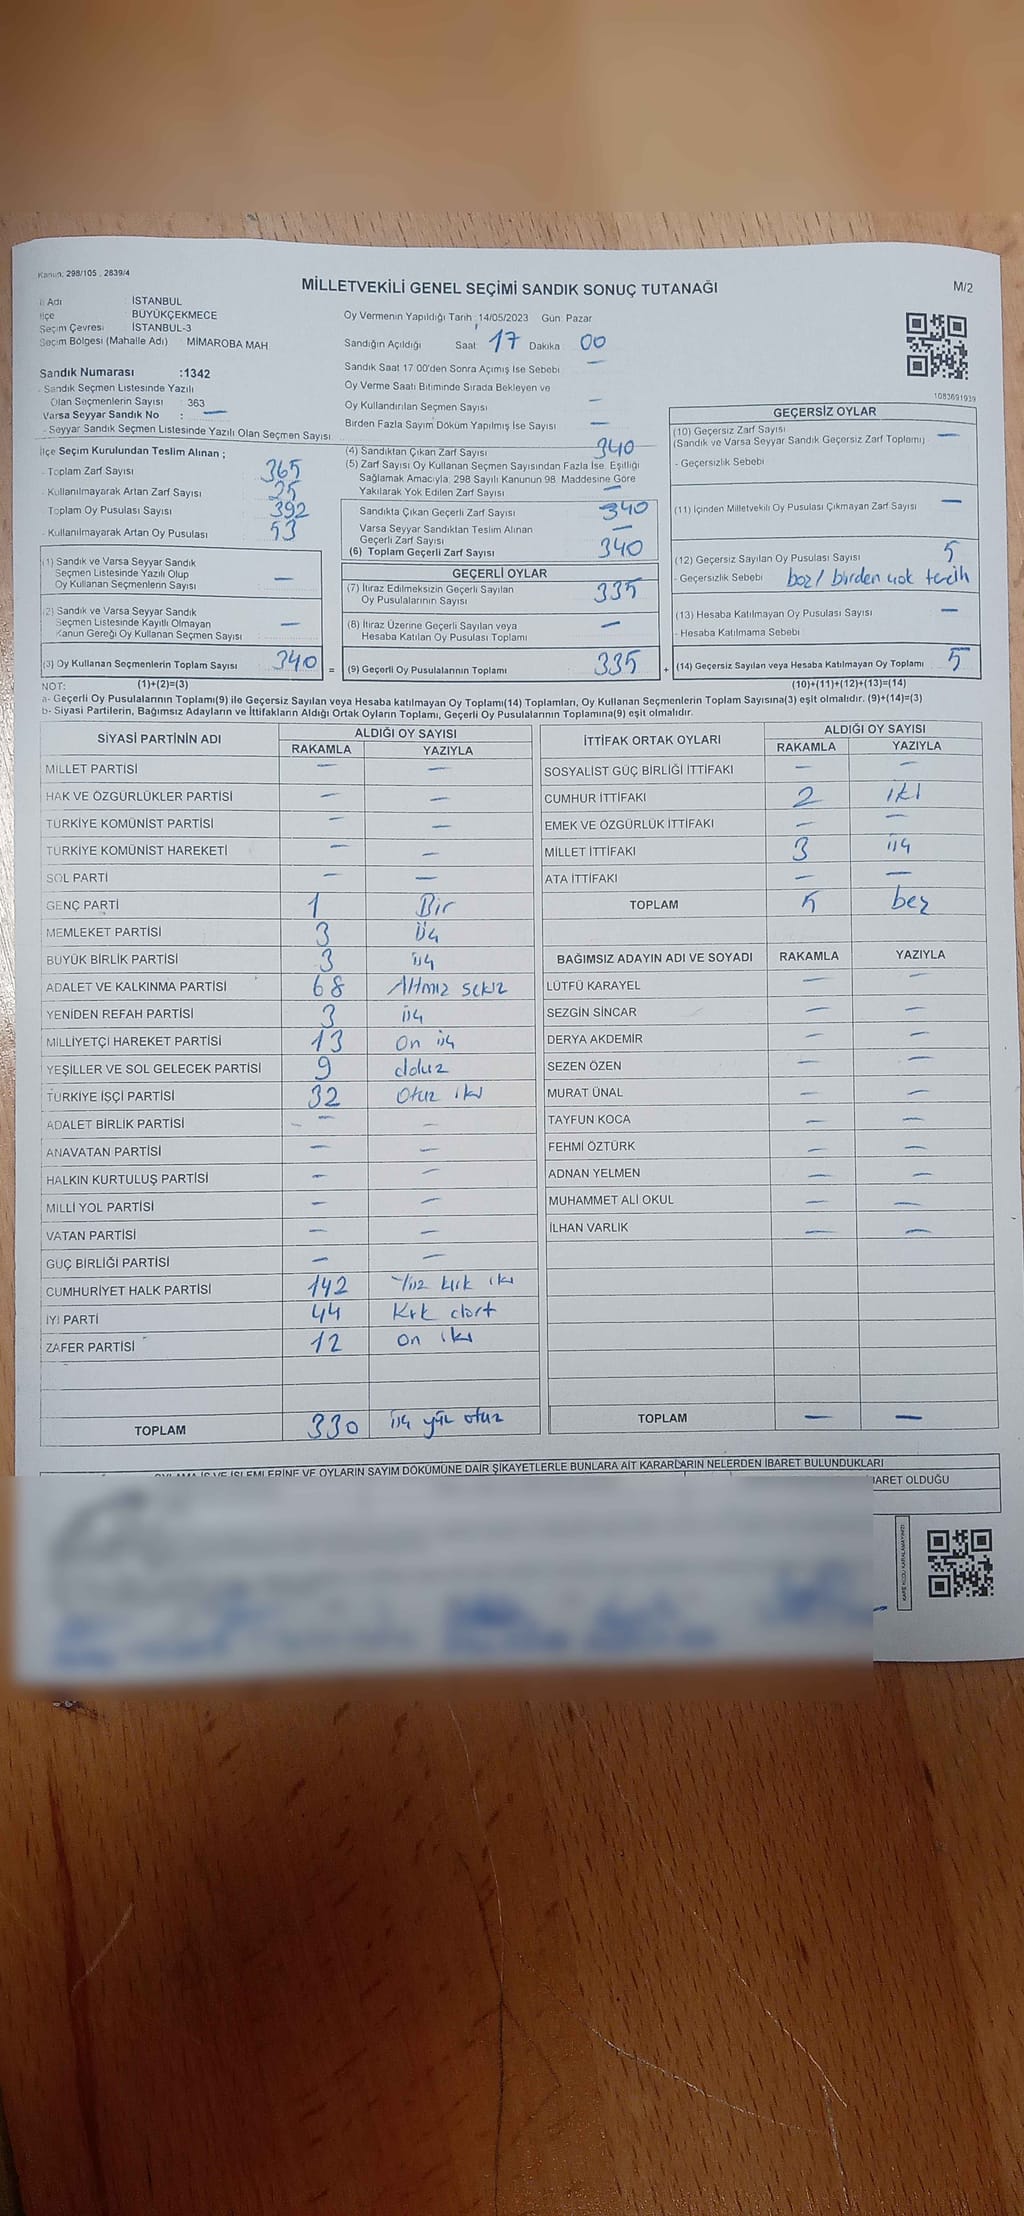 Kanun: 298/105 , 2839/4
MİLLETVEKİLİ GENEL SEÇİMİ SANDIK SONUÇ TUTANAĞI
M/2
İl Adı İSTANBUL
İlçe BÜYÜKÇEKMECE
Seçim Çevresi İSTANBUL-3
Seçim Bölgesi (Mahalle Adı) MİMAROBA MAH
Oy Vermenin Yapıldığı Tarih : 14/05/2023 Gün: Pazar
Sandığın Açıldığı Saat: 17 Dakika 00
Sandık Saat 17:00'den Sonra Açımış İse Sebebi —
Oy Verme Saati Bitiminde Sırada Bekleyen ve
Oy Kullandırılan Seçmen Sayısı —
Birden Fazla Sayım Döküm Yapılmış İse Sayısı —
1083691939
Sandık Numarası :1342
- Sandık Seçmen Listesinde Yazılı
Olan Seçmenlerin Sayısı : 363
Varsa Seyyar Sandık No : —
- Seyyar Sandık Seçmen Listesinde Yazılı Olan Seçmen Sayısı
İlçe Seçim Kurulundan Teslim Alınan ;
- Toplam Zarf Sayısı 365
- Kullanılmayarak Artan Zarf Sayısı 25
- Toplam Oy Pusulası Sayısı 392
- Kullanılmayarak Artan Oy Pusulası 53
(1) Sandık ve Varsa Seyyar Sandık
Seçmen Listesinde Yazılı Olup
Oy Kullanan Seçmenlerin Sayısı —
(2) Sandık ve Varsa Seyyar Sandık
Seçmen Listesinde Kayıtlı Olmayan
Kanun Gereği Oy Kullanan Seçmen Sayısı —
(3) Oy Kullanan Seçmenlerin Toplam Sayısı 340 =
(1)+(2)=(3)
(4) Sandıktan Çıkan Zarf Sayısı 340
(5) Zarf Sayısı Oy Kullanan Seçmen Sayısından Fazla İse, Eşitliği
Sağlamak Amacıyla, 298 Sayılı Kanunun 98. Maddesine Göre
Yakılarak Yok Edilen Zarf Sayısı —
Sandıkta Çıkan Geçerli Zarf Sayısı 340
Varsa Seyyar Sandıktan Teslim Alınan
Geçerli Zarf Sayısı —
(6) Toplam Geçerli Zarf Sayısı 340
GEÇERLİ OYLAR
(7) İtiraz Edilmeksizin Geçerli Sayılan
Oy Pusulalarının Sayısı 335
(8) İtiraz Üzerine Geçerli Sayılan veya
Hesaba Katılan Oy Pusulası Toplamı —
(9) Geçerli Oy Pusulalarının Toplamı 335 +
GEÇERSİZ OYLAR
(10) Geçersiz Zarf Sayısı
(Sandık ve Varsa Seyyar Sandık Geçersiz Zarf Toplamı) —
- Geçersizlik Sebebi
(11) İçinden Milletvekili Oy Pusulası Çıkmayan Zarf Sayısı —
(12) Geçersiz Sayılan Oy Pusulası Sayısı 5
- Geçersizlik Sebebi boş/ birden çok tercih
(13) Hesaba Katılmayan Oy Pusulası Sayısı —
- Hesaba Katılmama Sebebi
(14) Geçersiz Sayılan veya Hesaba Katılmayan Oy Toplamı 5
(10)+(11)+(12)+(13)=(14)
NOT:
a- Geçerli Oy Pusulalarının Toplamı(9) ile Geçersiz Sayılan veya Hesaba katılmayan Oy Toplamı(14) Toplamları, Oy Kullanan Seçmenlerin Toplam Sayısına(3) eşit olmalıdır. (9)+(14)=(3)
b- Siyasi Partilerin, Bağımsız Adayların ve İttifakların Aldığı Ortak Oyların Toplamı, Geçerli Oy Pusulalarının Toplamına(9) eşit olmalıdır.
SİYASİ PARTİNİN ADI ALDIĞI OY SAYISI
RAKAMLA YAZIYLA
MİLLET PARTİSİ — —
HAK VE ÖZGÜRLÜKLER PARTİSİ — —
TÜRKİYE KOMÜNİST PARTİSİ — —
TÜRKİYE KOMÜNİST HAREKETİ — —
SOL PARTİ — —
GENÇ PARTİ 1 Bir
MEMLEKET PARTİSİ 3 üç
BÜYÜK BİRLİK PARTİSİ 3 üç
ADALET VE KALKINMA PARTİSİ 68 Altmış sekiz
YENİDEN REFAH PARTİSİ 3 üç
MİLLİYETÇİ HAREKET PARTİSİ 13 On üç
YEŞİLLER VE SOL GELECEK PARTİSİ 9 dokuz
TÜRKİYE İŞÇİ PARTİSİ 32 Otuz iki
ADALET BİRLİK PARTİSİ — —
ANAVATAN PARTİSİ — —
HALKIN KURTULUŞ PARTİSİ — —
MİLLİ YOL PARTİSİ — —
VATAN PARTİSİ — —
GÜÇ BİRLİĞİ PARTİSİ — —
CUMHURİYET HALK PARTİSİ 142 Yüz kırk iki
İYİ PARTİ 44 Kırk dört
ZAFER PARTİSİ 12 On iki
TOPLAM 330 üç yüz otuz
İTTİFAK ORTAK OYLARI ALDIĞI OY SAYISI
RAKAMLA YAZIYLA
SOSYALİST GÜÇ BİRLİĞİ İTTİFAKI — —
CUMHUR İTTİFAKI 2 iki
EMEK VE ÖZGÜRLÜK İTTİFAKI — —
MİLLET İTTİFAKI 3 üç
ATA İTTİFAKI — —
TOPLAM 5 beş
BAĞIMSIZ ADAYIN ADI VE SOYADI RAKAMLA YAZIYLA
LÜTFÜ KARAYEL — —
SEZGİN SİNCAR — —
DERYA AKDEMİR — —
SEZEN ÖZEN — —
MURAT ÜNAL — —
TAYFUN KOCA — —
FEHMİ ÖZTÜRK — —
ADNAN YELMEN — —
MUHAMMET ALİ OKUL — —
İLHAN VARLIK — —
TOPLAM — —
VE İŞLEMLERİNE VE OYLARIN SAYIM DÖKÜMÜNE DAİR ŞİKAYETLERLE BUNLARA AİT KARARLARIN NELERDEN İBARET BULUNDUKLARI
OLDUĞU